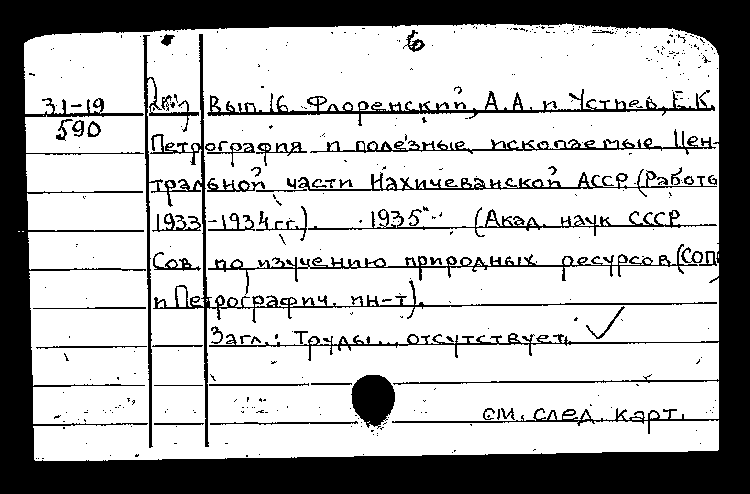 6
31-19 Вып. 16. Флоренский, А.А. и Устиев, Е.К.
590
Петрография и полезные ископаемые Цен-
тральной части Нахичеванской АССР (Работы
1933-1934 гг.). 1935. (Акад. наук СССР.
Сов. по изучению природных ресурсов (СОПС)
и Петрографич. ин-т).
Загл.: Труды... отсутствует.
см. след. карт.